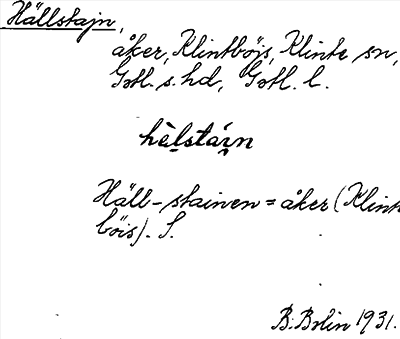 Hällstajn,
åker, Klintböis, Klinte sn,
Gotl. s. hd, Gotl. l.
hèlstái̯n
Häll-stainen = åker (Klint
böis). S.
B. Bolin 1931.